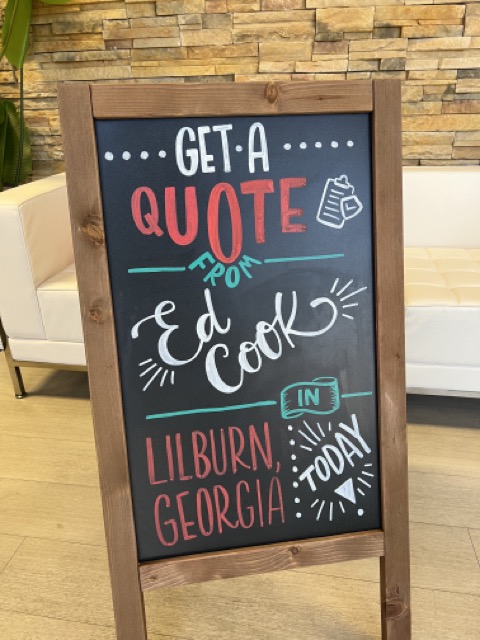 GET·A
QUOTE
FROM
Ed
Cook
IN
LILBURN,
GEORGIA
TODAY